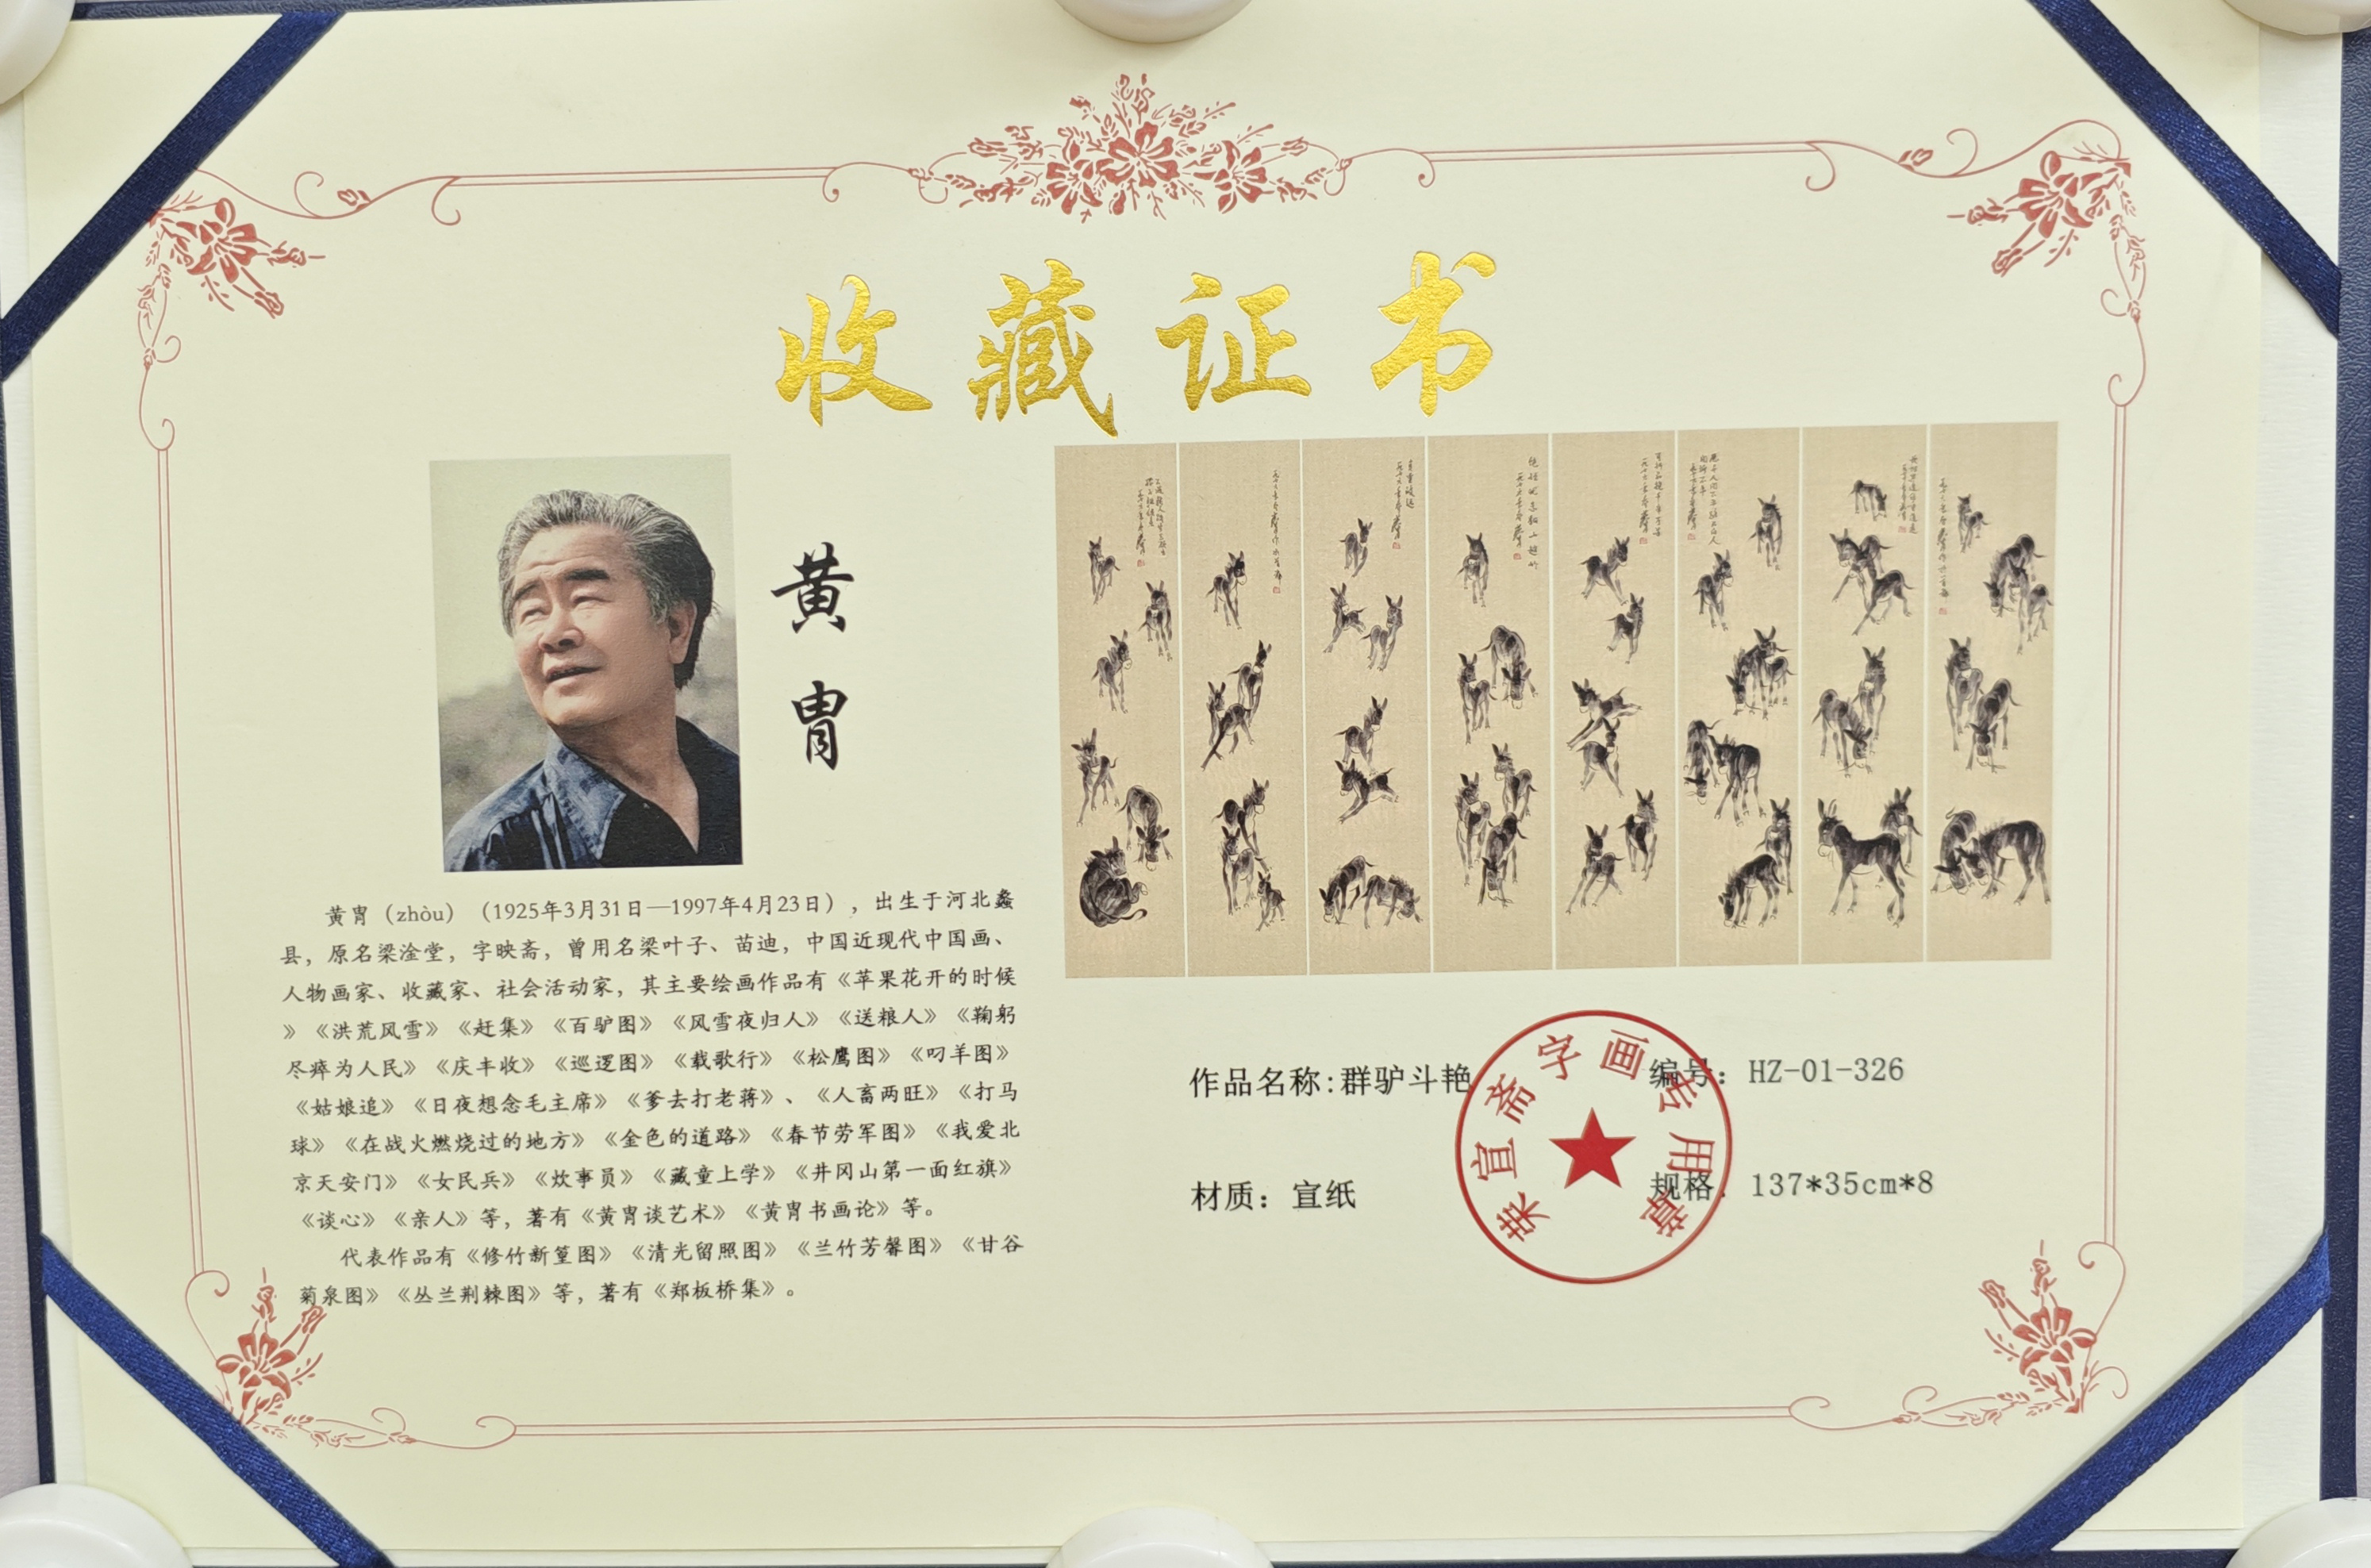 收藏证书
黄胄
黄胄（zhòu）（1925年3月31日—1997年4月23日），出生于河北蠡
县，原名梁淦堂，字映斋，曾用名梁叶子、苗迪，中国近现代中国画、
人物画家、收藏家、社会活动家，其主要绘画作品有《苹果花开的时候
》《洪荒风雪》《赶集》《百驴图》《风雪夜归人》《送粮人》《鞠躬
尽瘁为人民》《庆丰收》《巡逻图》《载歌行》《松鹰图》《叼羊图》
《姑娘追》《日夜想念毛主席》《爹去打老蒋》、《人畜两旺》《打马
球》《在战火燃烧过的地方》《金色的道路》《春节劳军图》《我爱北
京天安门》《女民兵》《炊事员》《藏童上学》《井冈山第一面红旗》
《谈心》《亲人》等，著有《黄胄谈艺术》《黄胄书画论》等。
代表作品有《修竹新篁图》《清光留照图》《兰竹芳馨图》《甘谷
菊泉图》《丛兰荆棘图》等，著有《郑板桥集》。
作品名称:群驴斗艳
编号：HZ-01-326
材质：宣纸
规格：137*35cm*8
荣宣斋字画专用章